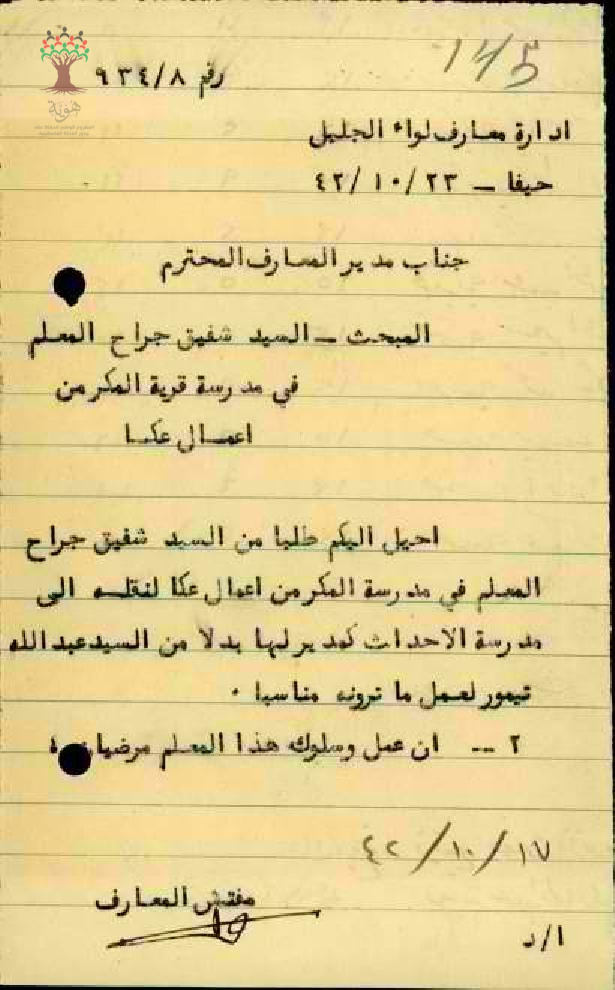 ١٤/٣
هوية
رقم ٩٣٤/٨
ادارة معارف لواء الجليل
حيفا – ٤٢/١٠/٢٣
جناب مدير المعارف المحترم
المبحث – السيد شفيق جراح المعلم
في مدرسة قرية المكر من
اعمال عكا
احيل اليكم طلبا من السيد شفيق جراح
المعلم في مدرسة المكر من اعمال عكا لنقله الى
مدرسة الاحداث كمدير لها بدلا من السيد عبد الله
تيمور لعمل ما ترونه مناسبا ٠
٢ -- ان عمل وسلوك هذا المعلم مرضيان ٠
٤٢/١٠/١٧
مفتش المعارف
ا/د